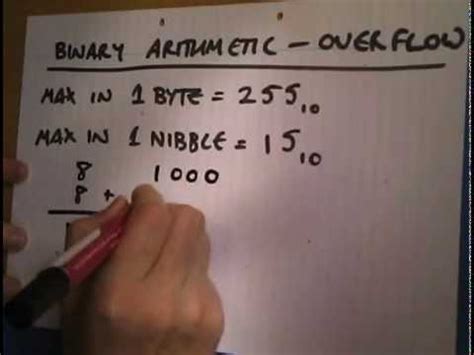 BINARY ARITHMETIC - OVERFLOW
MAX IN 1 BYTE = 255₁₀
MAX IN 1 NIBBLE = 15₁₀
8 1000
8 +